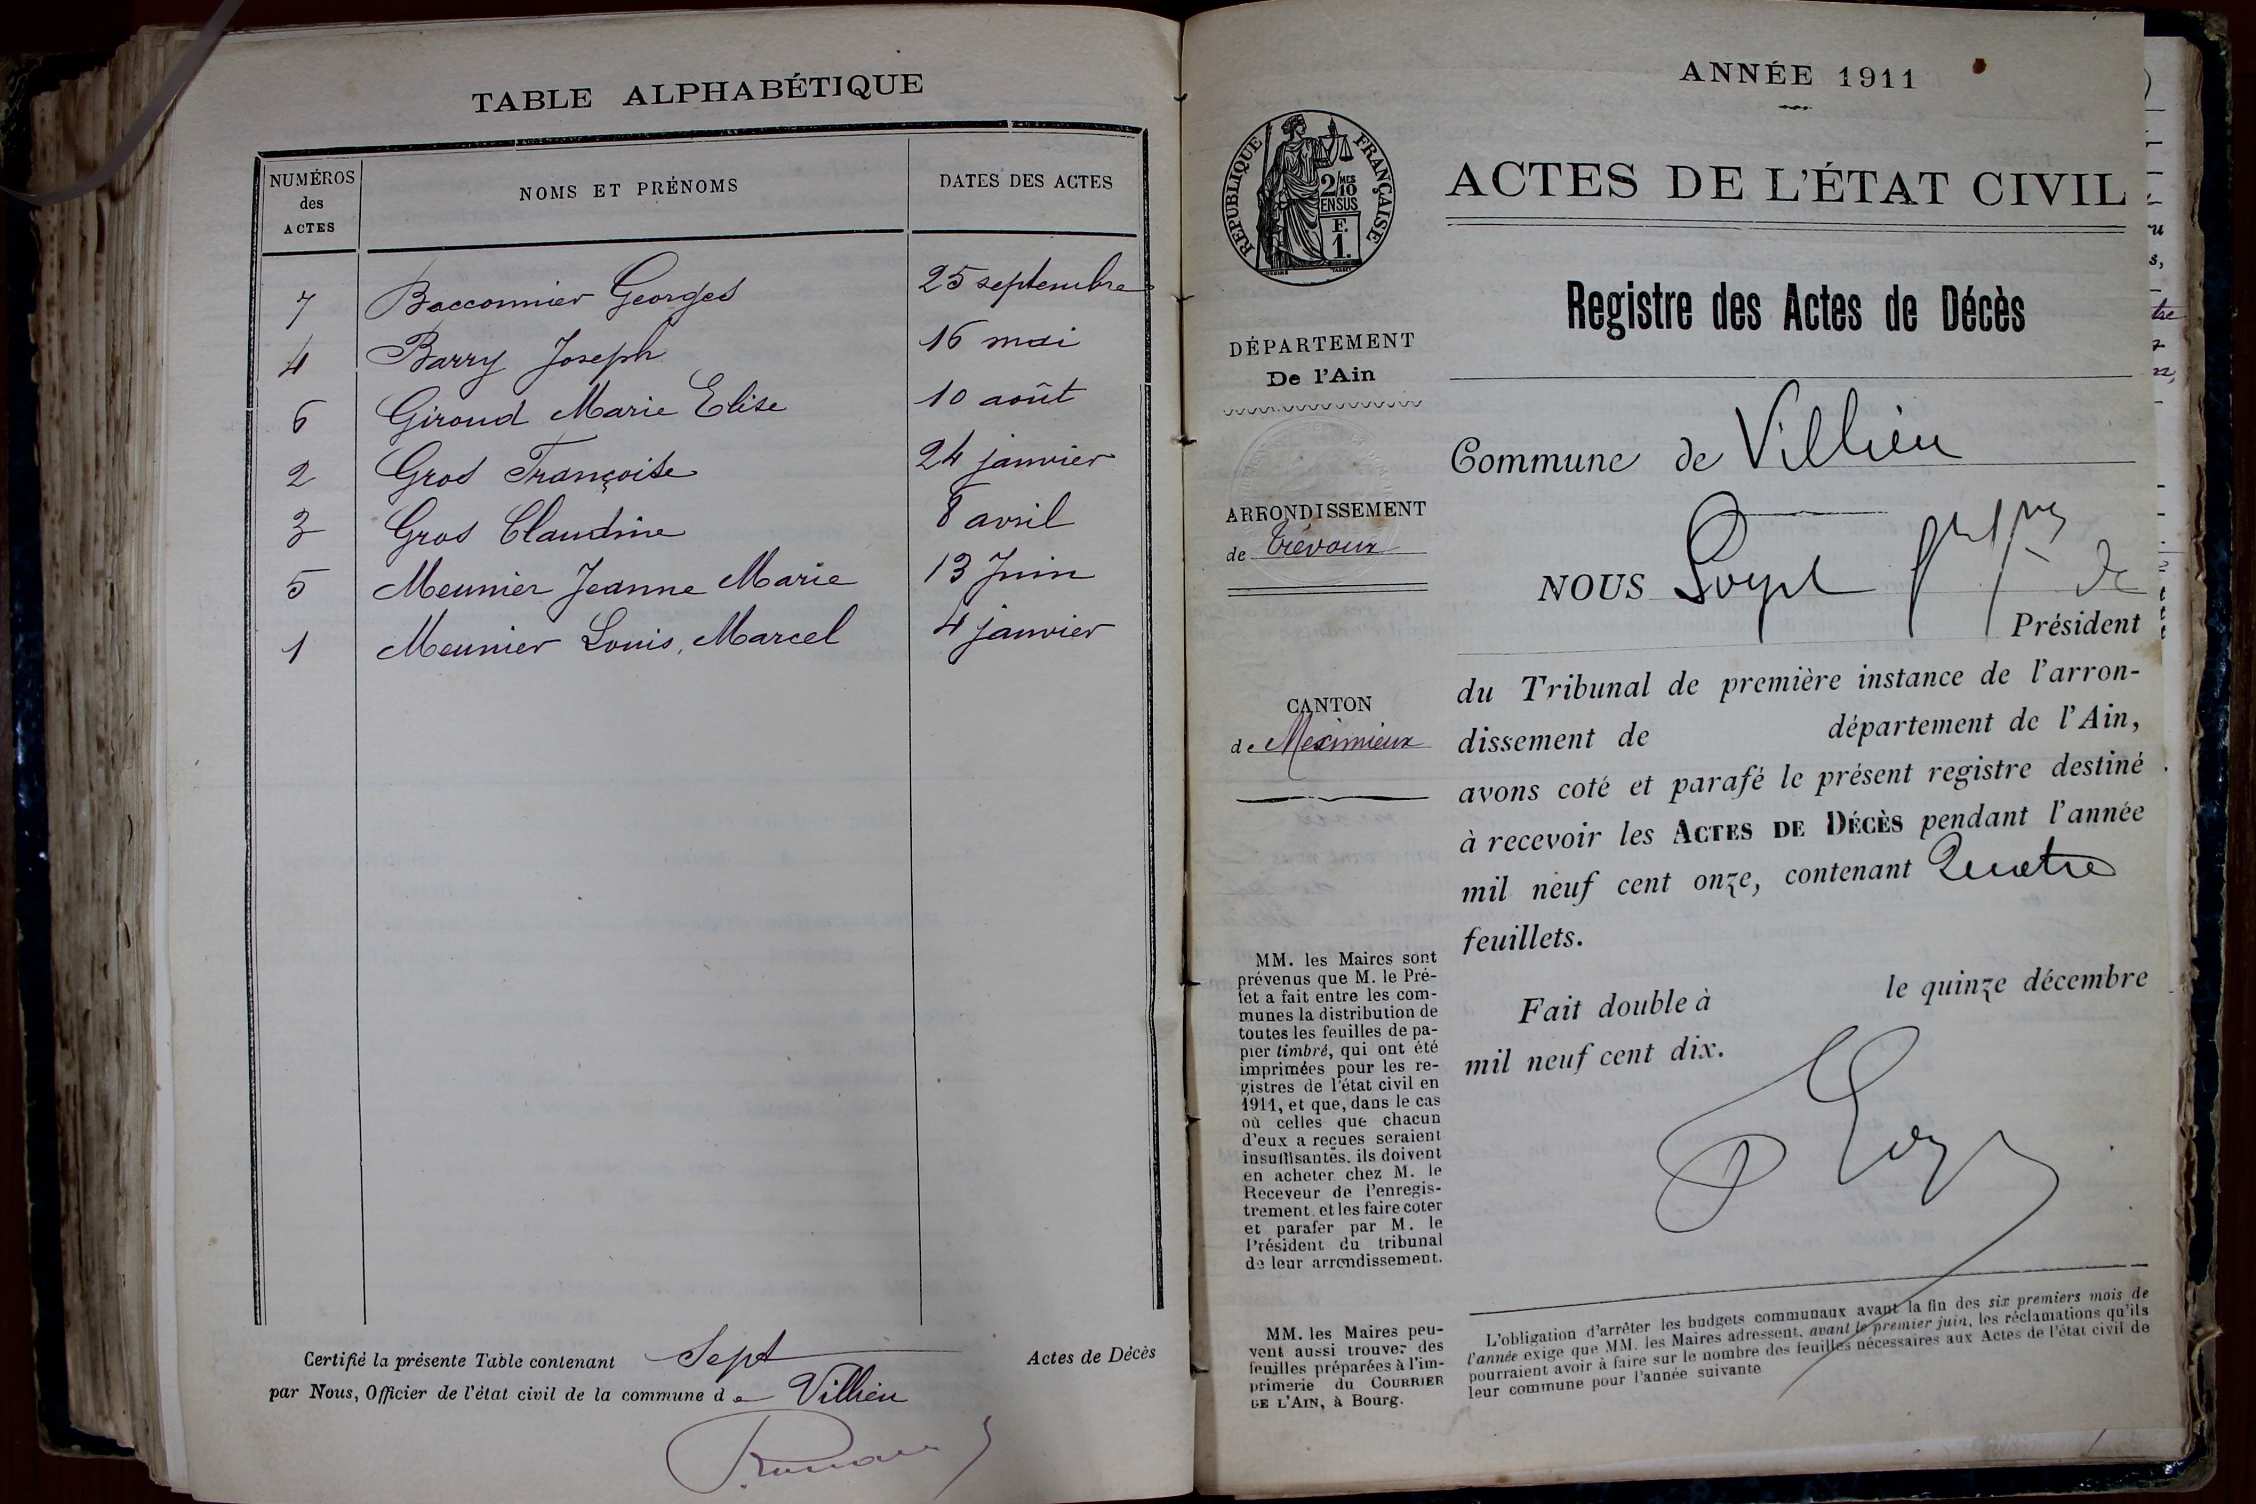 TABLE ALPHABÉTIQUE
NUMÉROS des ACTES
NOMS ET PRÉNOMS
DATES DES ACTES
7 Bacconnier Georges 25 septembre
4 Barry Joseph 16 mai
6 Giroud Marie Elise 10 août
2 Gros Françoise 24 janvier
3 Gros Claudine 8 avril
5 Meunier Jeanne Marie 13 Juin
1 Meunier Louis, Marcel 4 janvier
Certifié la présente Table contenant Sept Actes de Décès
par Nous, Officier de l'état civil de la commune de Villieu
ANNÉE 1911
RÉPUBLIQUE FRANÇAISE
2/10 MES
EN SUS
F.
1.
ACTES DE L'ÉTAT CIVIL
Registre des Actes de Décès
DÉPARTEMENT
De l'Ain
ARRONDISSEMENT
de Trévoux
CANTON
de Meximieux
MM. les Maires sont
prévenus que M. le Pré-
fet a fait entre les com-
munes la distribution de
toutes les feuilles de pa-
pier timbré, qui ont été
imprimées pour les re-
gistres de l'état civil en
1911, et que, dans le cas
où celles que chacun
d'eux a reçues seraient
insuffisantes, ils doivent
en acheter chez M. le
Receveur de l'enregis-
trement et les faire coter
et parafer par M. le
Président du tribunal
de leur arrondissement.
MM. les Maires peu-
vent aussi trouver des
feuilles préparées à l'im-
primerie du COURRIER
DE L'AIN, à Bourg.
Commune de Villieu
NOUS
Président
du Tribunal de première instance de l'arron-
dissement de département de l'Ain,
avons coté et parafé le présent registre destiné
à recevoir les ACTES DE DÉCÈS pendant l'année
mil neuf cent onze, contenant Quatre
feuillets.
Fait double à le quinze décembre
mil neuf cent dix.
L'obligation d'arrêter les budgets communaux avant la fin des six premiers mois de
l'année exige que MM. les Maires adressent, avant le premier juin, les réclamations qu'ils
pourraient avoir à faire sur le nombre des feuilles nécessaires aux Actes de l'état civil de
leur commune pour l'année suivante